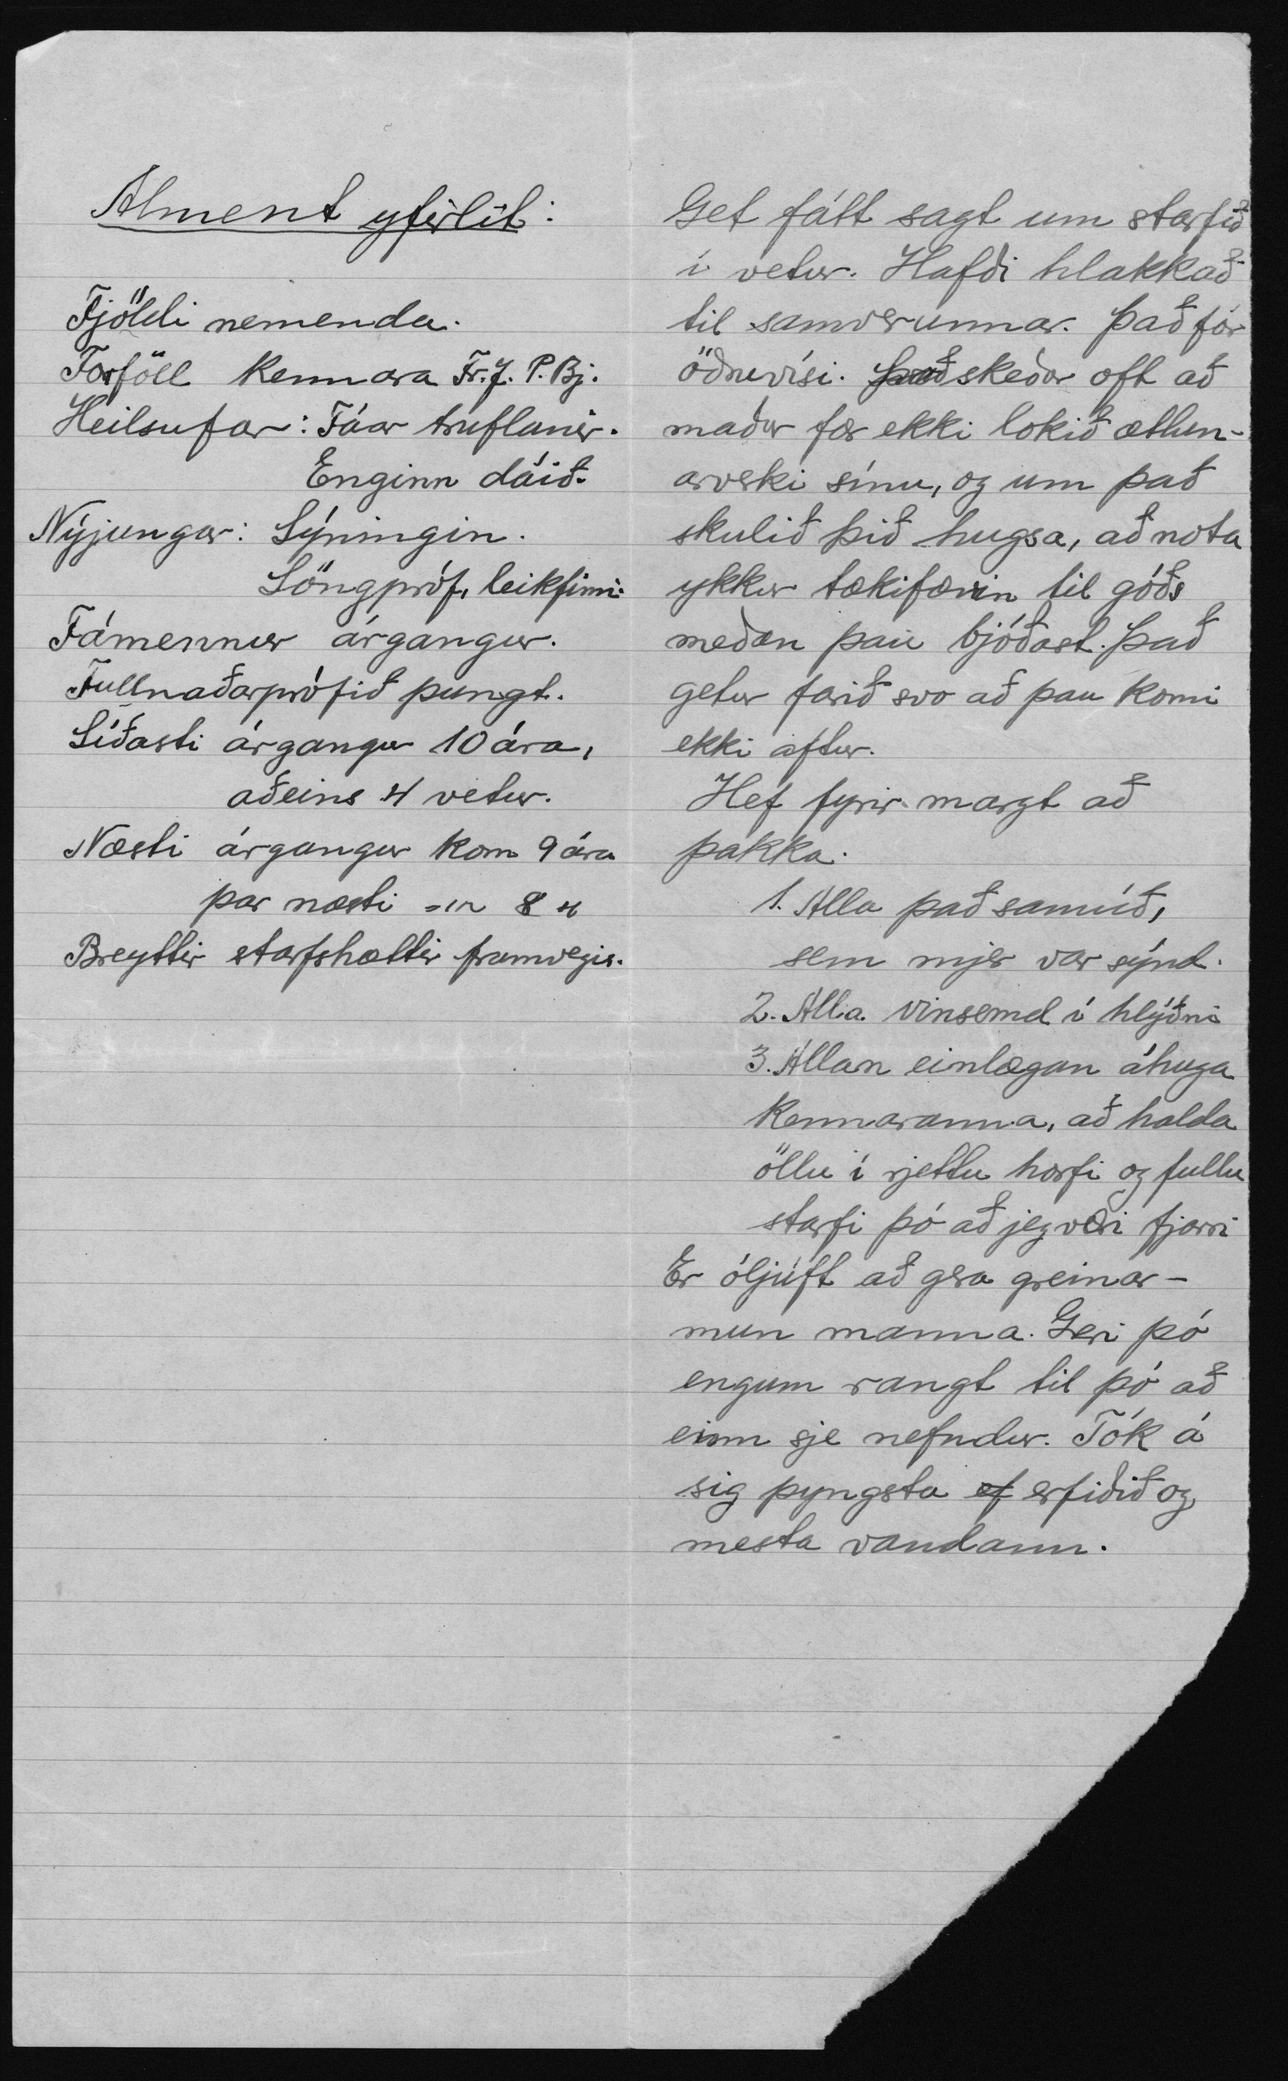 Alment yfirlit:
Fjöldi nemenda.
Forföll kennara Fr. J. P. Bj.
Heilsufar: Fáar truflanir.
Enginn dáið.
Nýjungar: Sýningin.
Söngpróf, leikfimi.
Fámennur árgangur.
Fullnaðarprófið þungt.
Síðasti árgangur 10 ára,
aðeins 4 vetur.
Næsti árgangur kom 9 ára
þar næsti -"- 8 "
Breyttir starfshættir framvegis.
Get fátt sagt um starfið
í vetur. Hafði hlakkað
til samverunnar. Það fór
öðruvísi. Það skeðar oft að
maður fær ekki lokið ætlun-
arverki sínu, og um það
skulið þið hugsa, að nota
ykkur tækifærin til góðs
meðan þau bjóðast. Það
getur farið svo að þau komi
ekki aftur.
Hef fyrir margt að
þakka.
1. Alla það samúð,
sem mjer var sýnd.
2. Alla vinsemd í hlýðni
3. Allan einlægan áhuga
kennaranna, að halda
öllu í rjettu horfi og fullu
starfi þó að jeg væri fjarri
Er óljúft að gera greinar-
mun manna. Geri þó
engum rangt til þó að
einn sje nefndur. Tók á
sig þyngsta ef erfiðið og
mesta vandann.